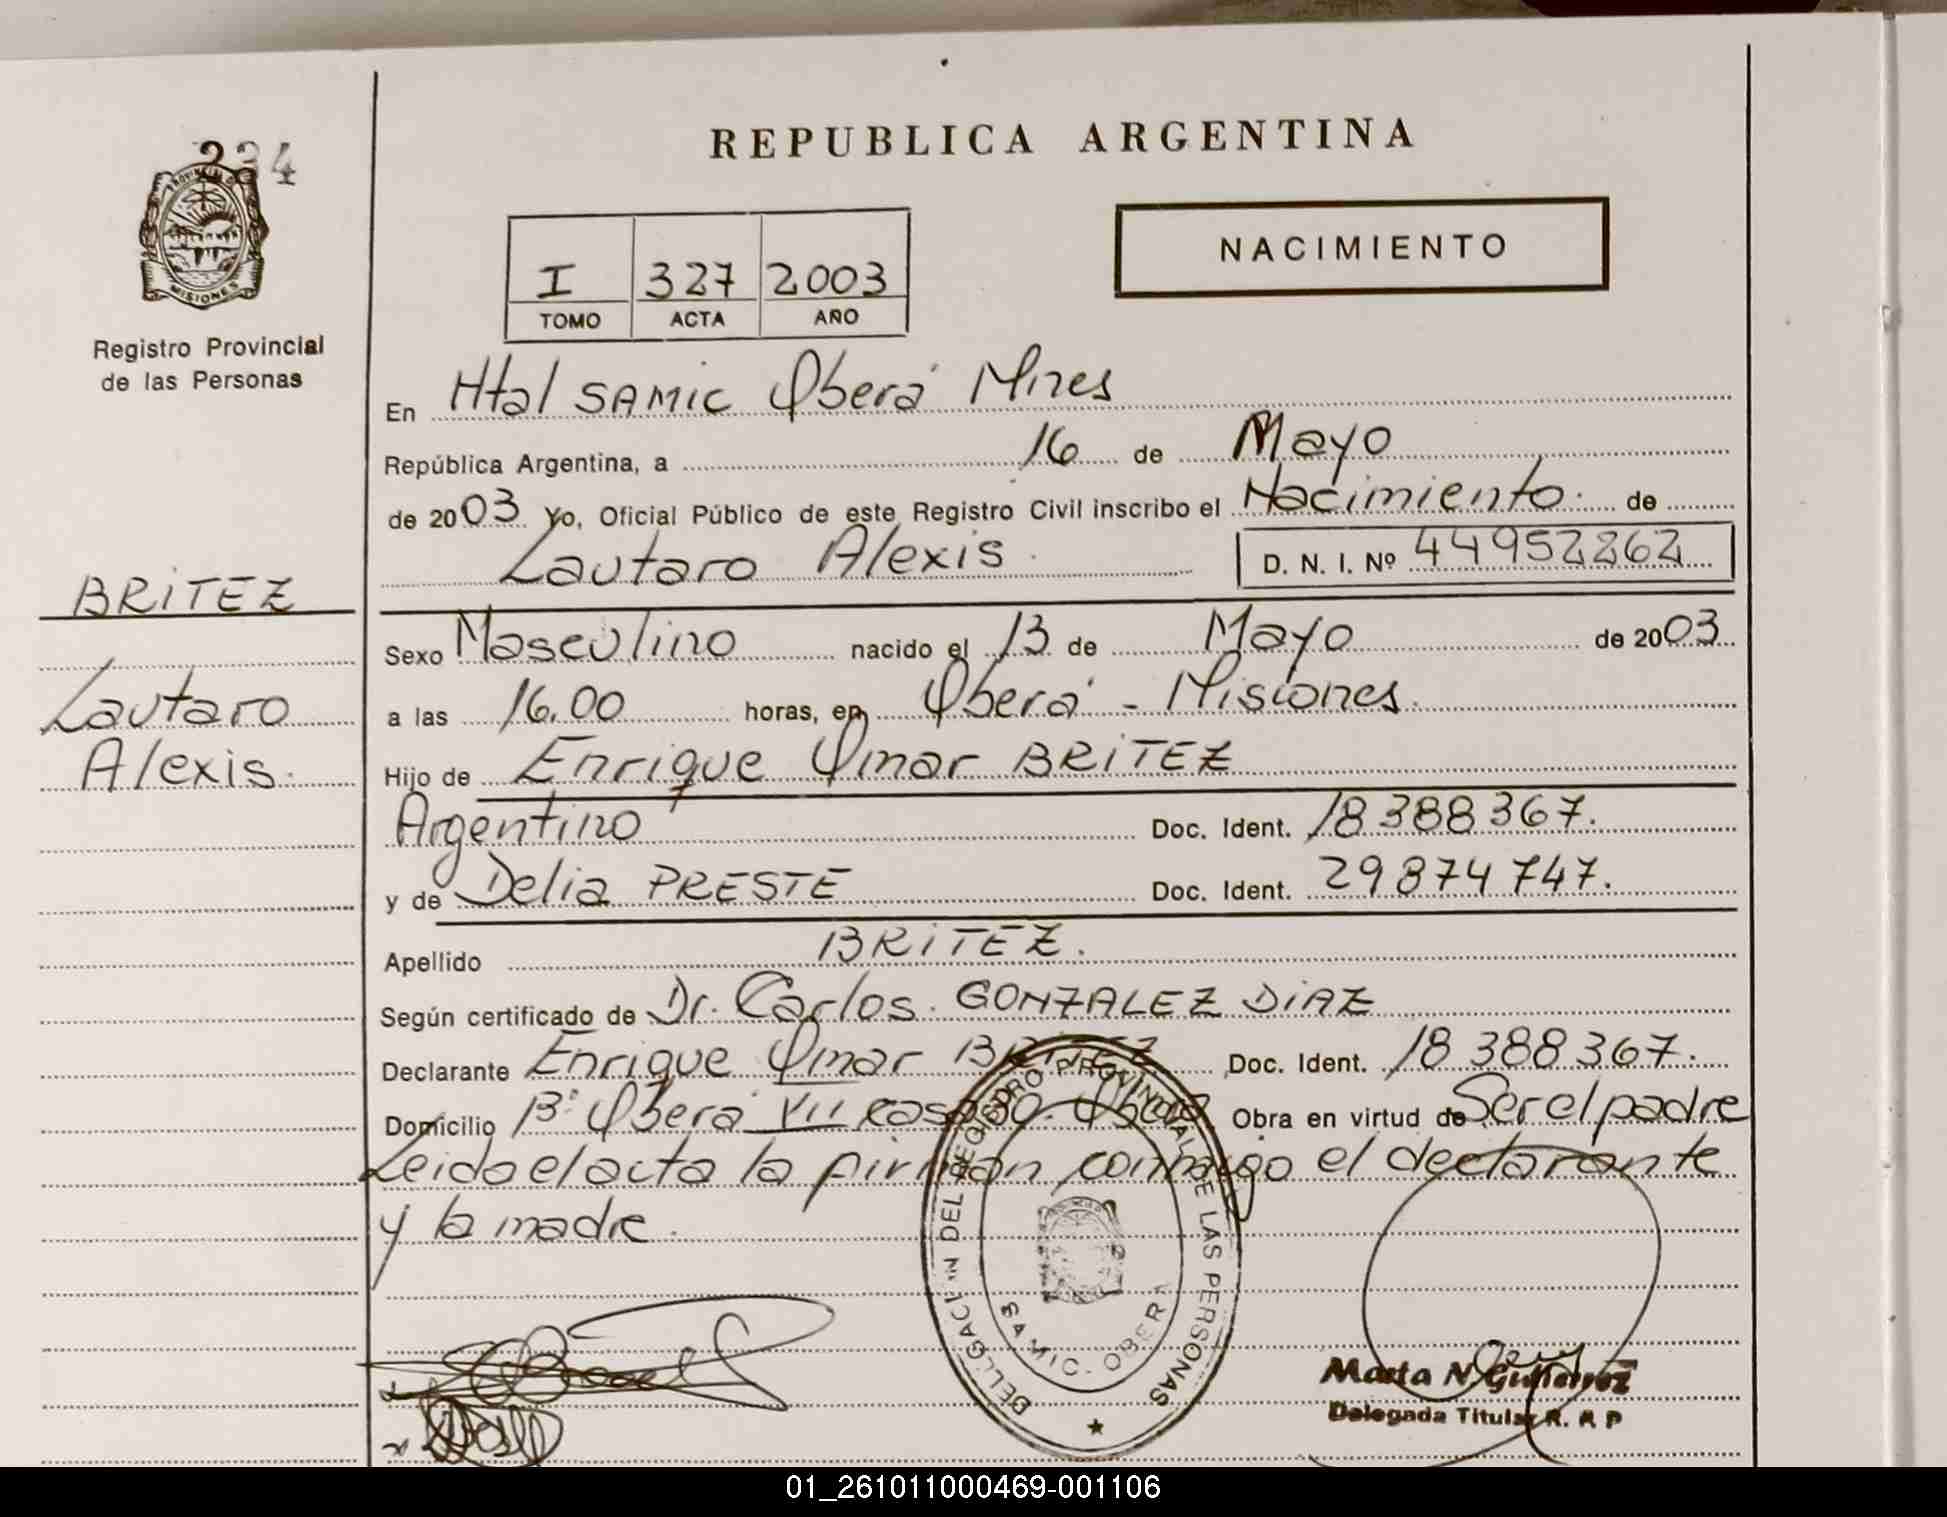 234
REPUBLICA ARGENTINA
PROVINCIA D MISIONES
Registro Provincial
de las Personas
I 327 2003
TOMO ACTA AÑO
NACIMIENTO
En Htal SAMIC Oberá Mnes
República Argentina, a 16 de Mayo
de 2003 Yo, Oficial Público de este Registro Civil inscribo el Nacimiento. de
Lautaro Alexis. D. N. I. Nº 44952262
BRITEZ
Lautaro
Alexis.
Sexo Masculino nacido el 13 de Mayo de 2003
a las 16.00 horas, en Oberá - Misiones.
Hijo de Enrique Omar BRITEZ
Argentino Doc. Ident. 18388367.
y de Delia PRESTE Doc. Ident. 29874747.
Apellido BRITEZ.
Según certificado de Dr. Carlos. GONZALEZ DIAZ
Declarante Enrique Omar BRITEZ Doc. Ident. 18388367.
Domicilio Bº Oberá VII Oberá Obra en virtud de Ser el padre
Leida el acta la firman conmigo el declarante
y la madre.
DELEGACION DEL REGISTRO PROVINCIAL DE LAS PERSONAS
SAMIC - OBERA
Marta N. Gutierrez
Delegada Titular R. R P
01_261011000469-001106